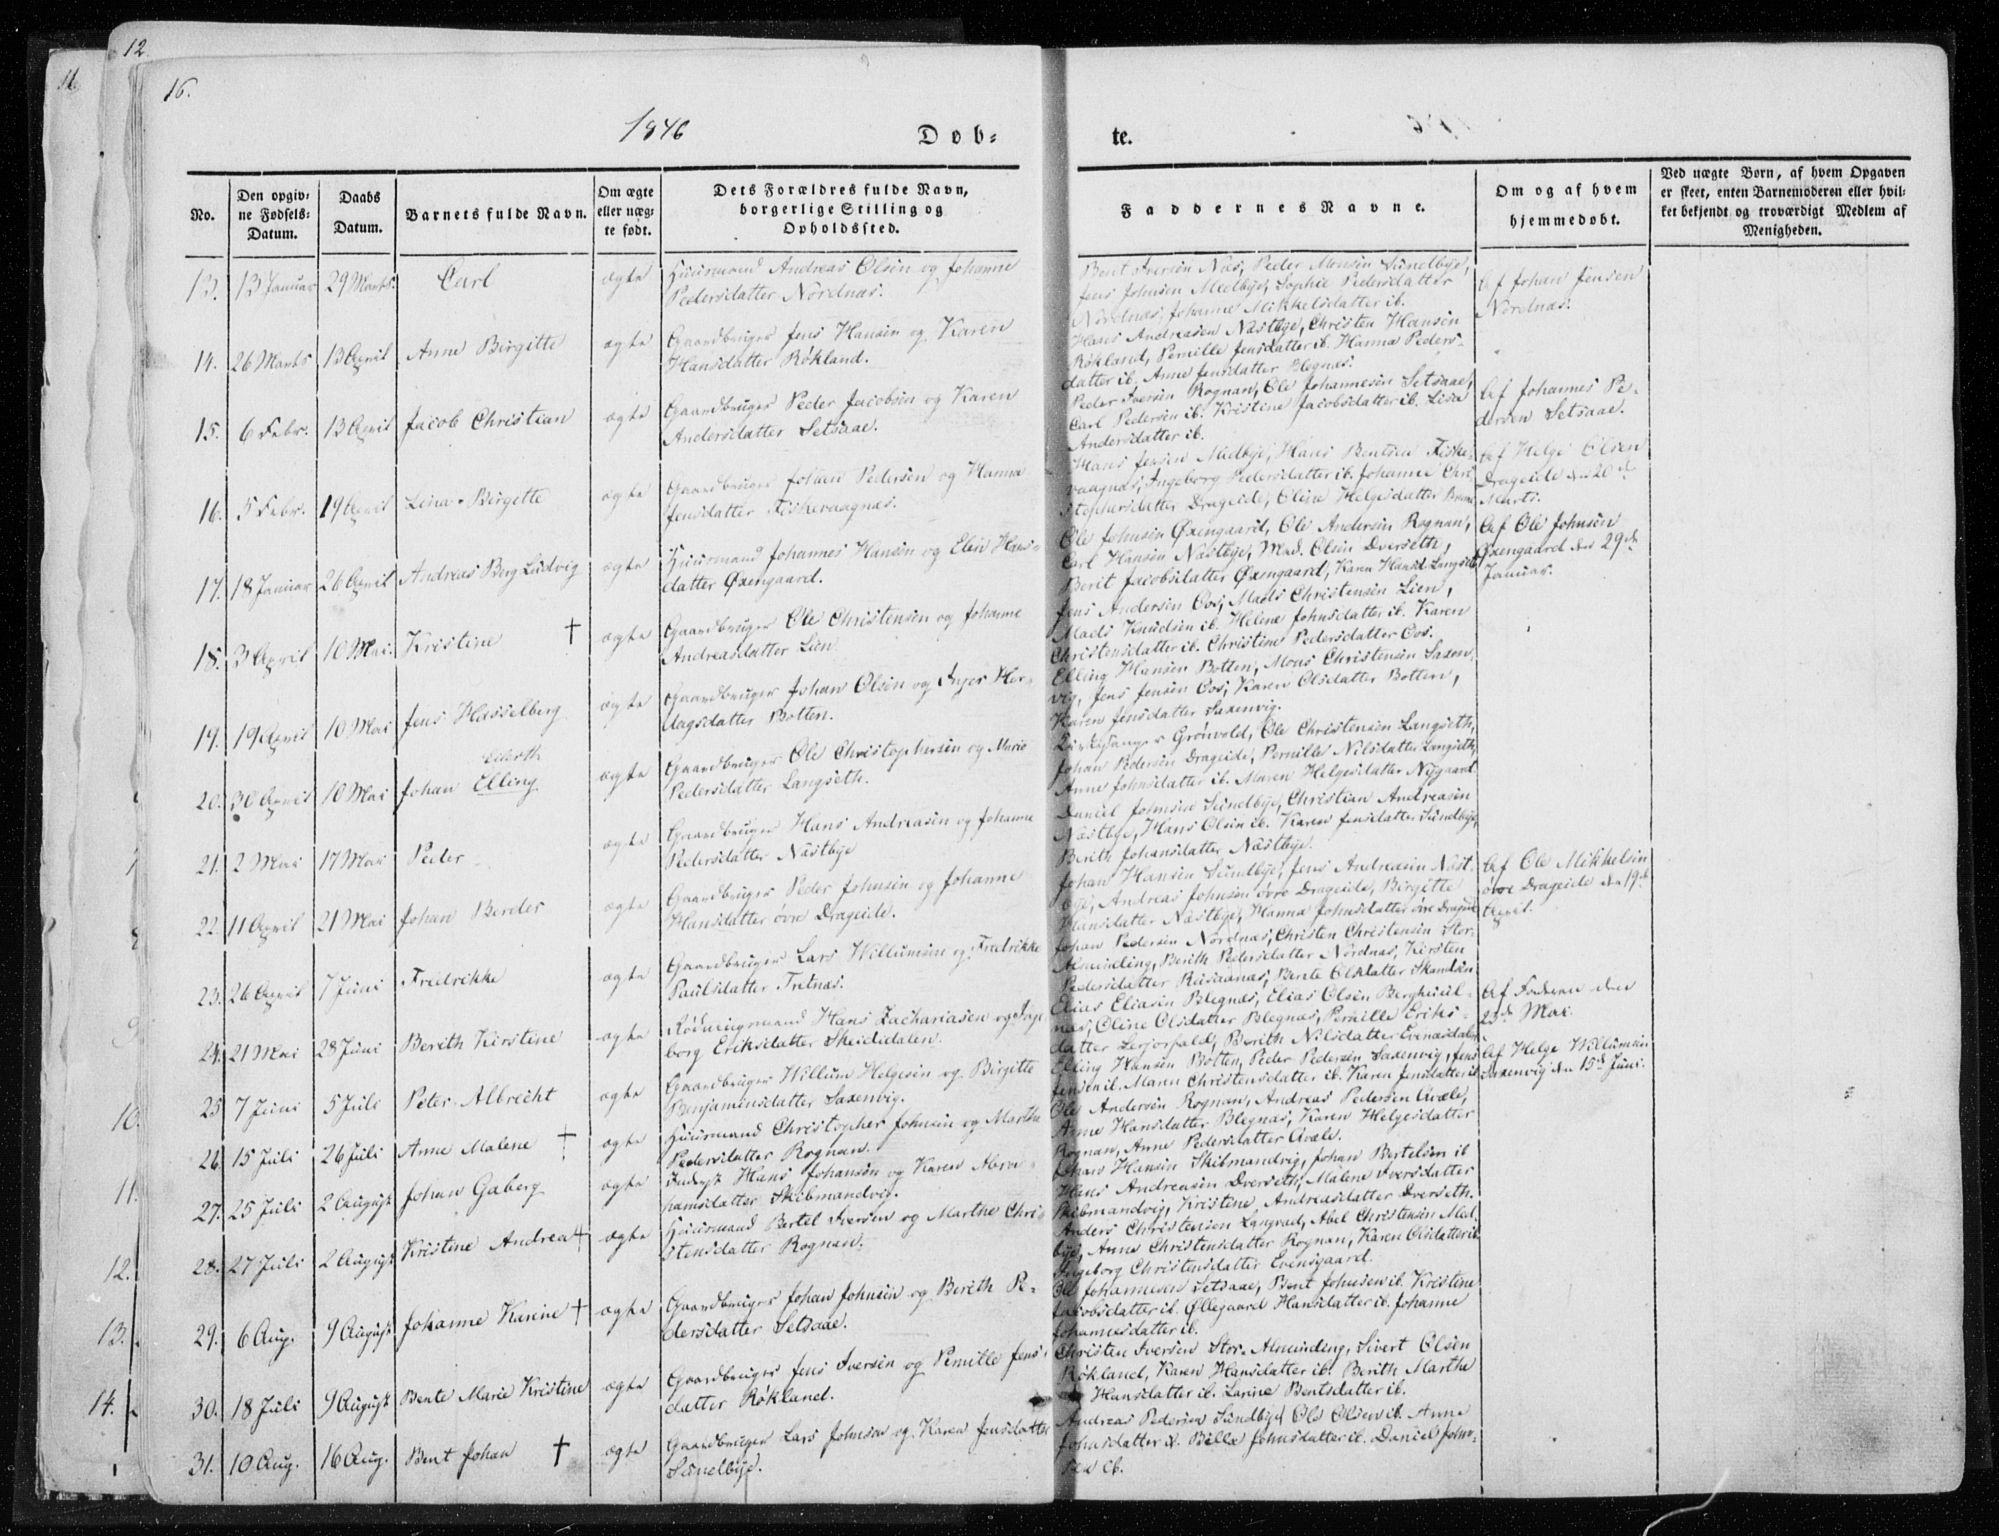 12.
16
16.
1846
Døb=
te.
No.
Den opgiv-
ne Fødsels-
Datum.
Daabs
Datum.
Barnets fulde Navn.
Om ægte
eller uæg-
te født.
Dets Forældres fulde Navn,
borgerlige Stilling og
Opholdssted.
Faddernes Navne.
Om og af hvem
hjemmedøbt.
Ved uægte Børn, af hvem Opgaven
er skeet, enten Barnemoderen eller hvil-
ket bekjendt og troværdigt Medlem af
Menigheden.
13. 13 Januar 29 Marts. Carl ægte Huusmand Andreas Olsen og Johanne
Pedersdatter Nordnæs.
Bent Iversen Næs, Peder Monsen Sundbye,
Jens Johnsen Medbye, Sophie Pedersdatter
Nordnæs, Johanne Mikkelsdatter ib.
Af Johan Jensen
Nordnæs.
14. 26 Marts 13 April Anne Birgitte ægte Gaardbruger Jens Hansen og Karen
Hansdatter Røkland.
Hans Andreasen Næstbye, Christen Hansen
Røkland, Pernille Jensdatter ib. Hanna Peders-
datter ib. Anne Jensdatter Blegnæs.
15. 6 Febr. 13 April Jacob Christian ægte Gaardbruger Peder Jacobsen og Karen
Andersdatter Setsaae.
Peder Iversen Rognan, Ole Johannesen Setsaae,
Carl Pedersen ib. Kristine Jacobsdatter ib. Lisa
Andersdatter ib.
Af Johannes Pe-
dersen Setsaae.
16. 5 Febr. 19 April Lina Birgitte ægte Gaardbruger Johan Pedersen og Hanna
Jensdatter Fiskevaagnæs.
Hans Jensen Medbye, Hans Bentsen Fiske-
vaagnæs, Ingeborg Pedersdatter ib. Johanne Chri-
stophersdatter Drageide, Oline Helgesdatter
Af Helge Olsen
Drageide den 20de
Marts.
17. 18 Januar 26 April Andreas Berg Ludvig ægte Huusmand Johannes Hansen og Elen Hans-
datter Øxengaard.
Ole Johnsen Øxengaard, Ole Andersen Rognan,
Carl Hansen Næstbye, Mad. Olsen Dverseth,
Berit Jacobsdatter Øxengaard, Karen Hansd. Langseth
Af Ole Johnsen
Øxengaard den 29de
Januar.
18. 3 April 10 Mai. Kristine † ægte Gaardbruger Ole Christensen og Johanne
Andreasdatter Lien
Jens Andersen Oos, Mads Christensen Lien,
Mads Knudsen ib. Helene Johnsdatter ib. Karen
Christensdatter ib. Christine Pedersdatter Oos.
19. 19 April 10 Mai Jens Hasselberg ægte Gaardbruger Johan Olsen og Inger Her-
dagsdatter Botten.
Elling Hansen Botten, Mons Christensen Saxen-
vig, Jens Jensen Oos, Karen Olsdatter Botten,
Karen Jensdatter Saxenvig.
20. 30 April 10 Mai Johan Elling ægte Gaardbruger Ole Christophersen og Maris
Pedersdatter Langseth.
Kirkesanger Grønvold, Ole Christensen Langseth,
Johan Pedersen Drageide, Pernille Nilsdatter Langseth,
Anne Johnsdatter ib. Maren Helgesdatter Nygaard
21. 2 Mai 17 Mai Peder ægte Gaardbruger Hans Andreasen og Johanne
Pedersdatter Næstbye
Daniel Johnsen Sundbye, Christian Andreasen
Næstbye, Hans Olsen ib. Karen Jensdatter Sundbye,
Berith Johansdatter Næstbye.
22. 11 April 21 Mai Johan Berder ægte Gaardbruger Peder Johnsen og Johanne
Hansdatter øvre Drageide.
Johan Hansen Sundbye, Jens Andreasen Næst-
bye, Andreas Johnsen øvre Drageide, Birgitte
Hansdatter Næstbye, Hanna Johnsdatter øvre Drageide
Af Ole Mikkelsen
øvre Drageide den 19de
April.
23. 26 April 7 Juni Fredrikke ægte Gaardbruger Lars Willumsen og Fredrikke
Paulsdatter Tretnæs.
Johan Pedersen Nordnæs, Christen Christensen Stor-
Almending, Berith Pedersdatter Nordnæs, Kirsten
Pedersdatter Rusaanæs, Bente Olsdatter
24. 21 Mai 28 Juni Berith Kirstine ægte Rødningsmand Hans Zachariasen og Inge-
borg Eriksdatter Skeididalen.
Elias Eliasen Blegnæs, Elias Olsen Berghuul-
næs, Oline Olsdatter Blegnæs, Pernille Eriks-
datter, Berith Nilsdatter Evenæsdalen
Af Faderen den
23de Mai.
25 7 Juni 5 Juli Peter Albrecht ægte Gaardbruger Willum Helgesen og Birgitte
Benjaminsdatter Saxenvig.
Elling Hansen Botten, Peder Pedersen Saxenvig, Jens
Jensen ib. Maren Christensdatter ib. Karen Jensdatter ib
Af Helge Willumsen
Saxenvig den 15de Juni.
26. 15 Juli 26 Juli Anne Malene † ægte Huusmand Christopher Johnsen og Marthe
Pedersdatter Rognan.
Ole Andersen Rognan, Andreas Pedersen Qvæle,
Anne Hansdatter Blegnæs, Karen Helgesdatter
Rognan, Anne Pedersdatter Qvæle.
27. 25 Juli 2 August Johan Gaberg ægte Inderst Hans Johansen og Karen Abra-
hamsdatter Skibmandvig.
Johan Hansen Skibmandvig, Johan Bertelsen ib
Hans Andreasen Dverseth, Malene Iversdatter
Skibmandvig, Kristine Andreasdatter Dverseth.
28. 27 Juli 2 August Kristine Andrea † ægte Huusmand Bertel Iversen og Marthe Chri-
stensdatter Rognan.
Anders Christensen Langvad, Abel Christensen Med-
bye, Anne Christensdatter Rognan, Karen Olsdatter ib.
Ingeborg Christensdatter Evensgaard.
29. 6 Aug. 9 August Johanne Karine † ægte Gaardbruger Johan Johnsen og Berith Pe-
dersdatter Setsaae.
Ole Johannesen Setsaae, Bent Johnsen ib. Kristine
Jacobsdatter ib. Øllegaard Hansdatter ib. Johanne
Johannesdatter ib.
30. 18 Juli 9 August Bente Marie Kristine ægte Gaardbruger Jens Iversen og Pernille Jens-
datter Røkland.
Christen Iversen Stor-Almending, Sivert Olsen
Røkland, Karen Hansdatter ib. Berith Marthe
Hansdatter ib. Larine Bentsdatter ib.
31. 10 Aug. 16 Aug. Bent Johan † ægte Gaardbruger Lars Johnsen og Karen Jensdatter
Sundbye.
Andreas Pedersen Sundbye, Ole Olsen ib. Anne
Johnsdatter ib. Bille Johnsdatter ib. Daniel John-
sen ib.
10.
11.
12.
13.
14.